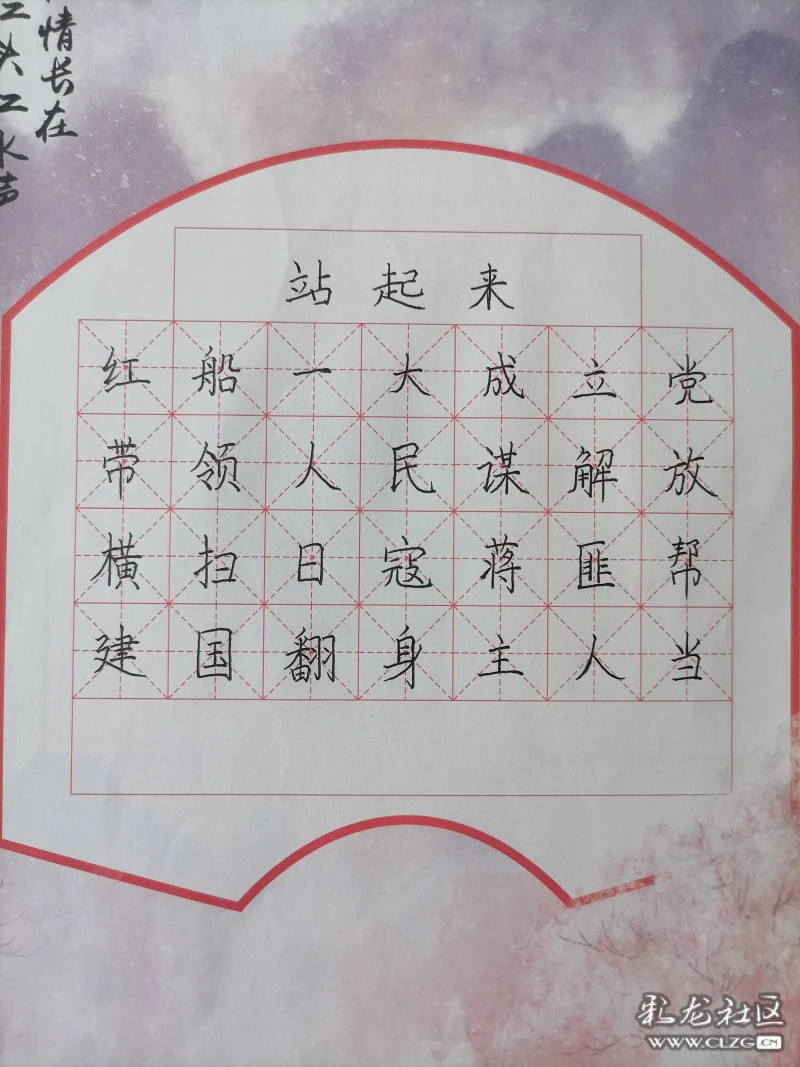 情长在
江头江水声
站起来
红船一大成立党
带领人民谋解放
横扫日寇蒋匪帮
建国翻身主人当
彩龙社区
WWW.CLZG.CN